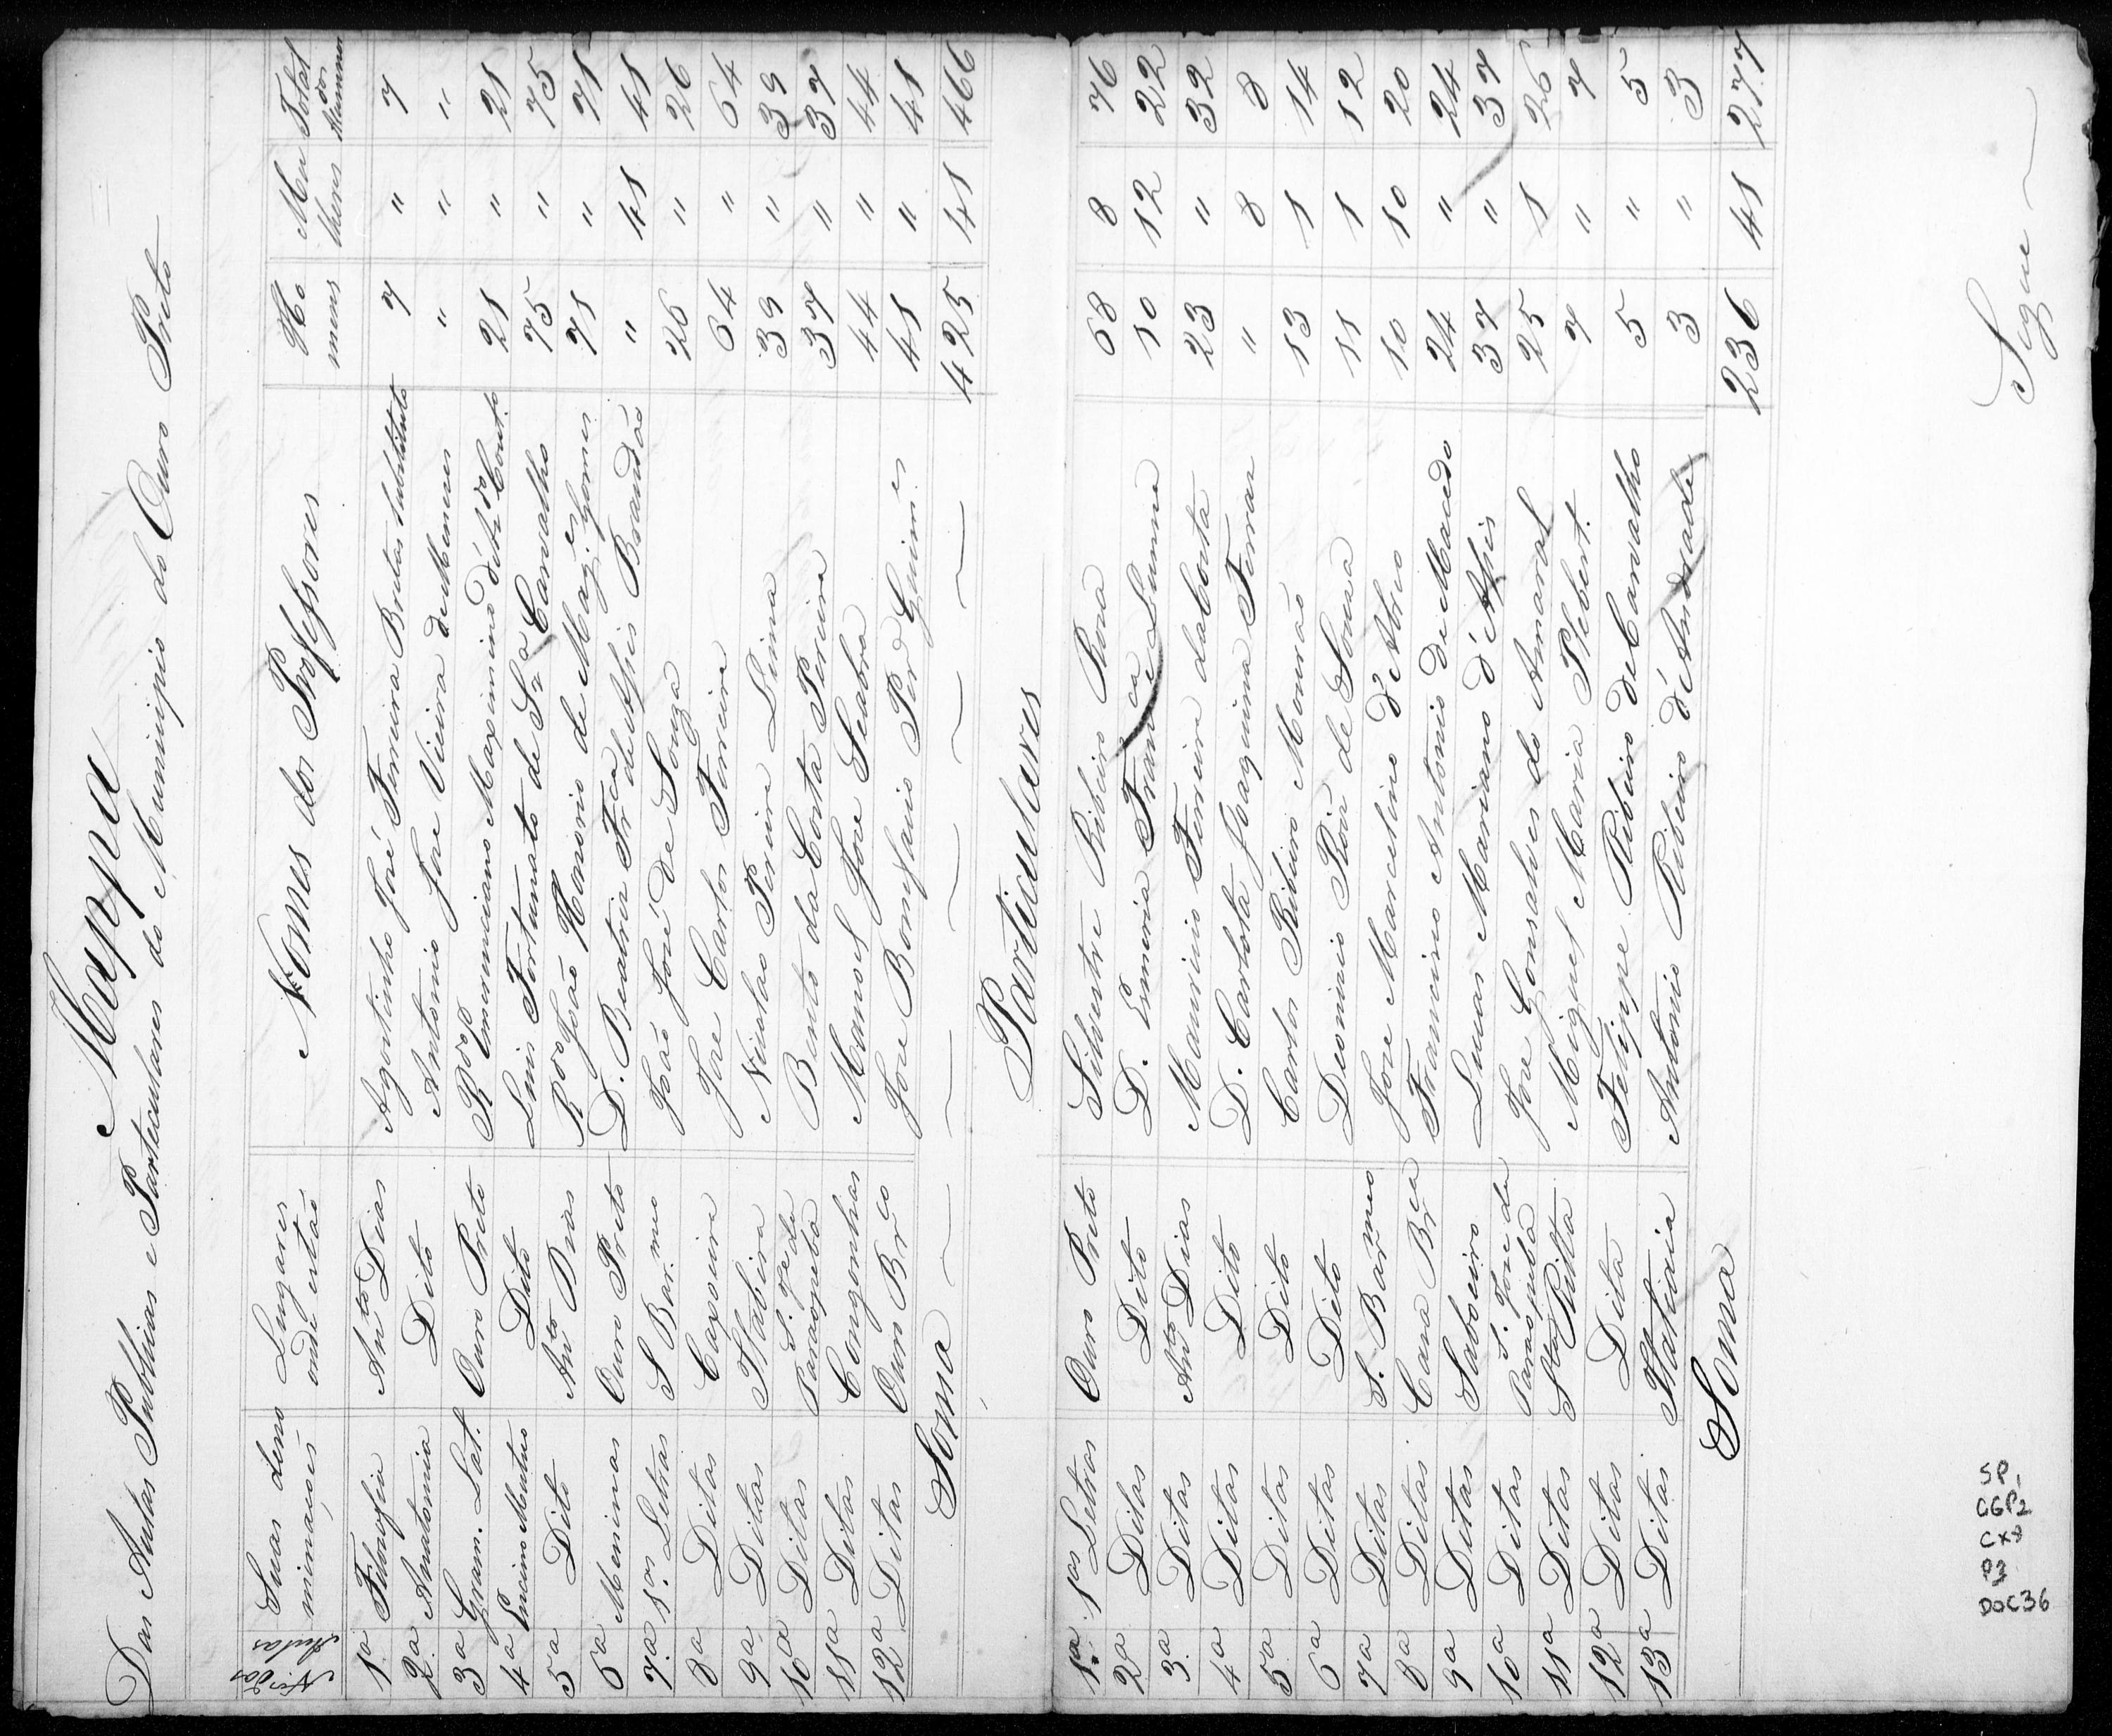 Mappa
Das Aulas Publicas e Particulares do Municipio do Ouro Preto
N.os das Aulas | Suas deno minaçoẽs | Lugares onde estão | Nomes dos Professores | Ho mens | Mu lheres | Total dos Alumnos
1.a | Filosofia | An.to Dias | Agostinho José Ferreira Bretas Substituto | 7 | " | 7
2.a | Anatomia | Dito | Antonio Jose Vieira de Menezes | " | " | "
3.a | Gram. Lat. | Ouro Preto | R.do Emerenciano Maximino d'Az.do Cout.o | 21 | " | 21
4.a | Encino Mutuo | Dito | Luis Fortunato de Sz.a Carvalho | 75 | " | 75
5.a | Dito | An.to Dias | R.do João Honorio de Mag.es Gomes | 71 | " | 71
6.a | Meninas | Ouro Preto | D. Beatriz Fr.ca de Assis Brandão | " | 41 | 41
7.a | 1.as Letras | S Bar.meo | João José de Souza | 26 | " | 26
8.a | Ditas | Caxoeira | Jose Carlos Ferreira | 64 | " | 64
9.a | Ditas | Itabira | Nicolao Pereira Lima | 39 | " | 39
10.a | Ditas | S. Je da Paraopeba | Bento da Costa Pereira | 37 | " | 37
11.a | Ditas | Congonhas | Manoel Jose Seabra | 44 | " | 44
12.a | Ditas | Ouro Br.co | Jose Bonifacio Per.a Guim.es | 41 | " | 41
Soma | 425 | 41 | 466
Particulares
1.a | 1.as Letras | Ouro Preto | Silvestre Ribeiro Rosa | 68 | 8 | 76
2.a | Ditas | Dito | D. Esmeria Fran.ca Lucinda | 10 | 12 | 22
3.a | Ditas | An.to Dias | Mauricio Ferreira da Costa | 23 | " | 32
4.a | Ditas | Dito | D. Carlota Joaquina Ferraz | " | 8 | 8
5.a | Ditas | Dito | Carlos Ribeiro Mourão | 13 | 1 | 14
6.a | Ditas | Dito | Deonizio Róiz de Souza | 11 | 1 | 12
7.a | Ditas | S. Bar.meo | Jose Marcelino d'Abreo | 10 | 10 | 20
8.a | Ditas | Caza Br.ca | Francisco Antonio de Macedo | 24 | " | 24
9.a | Ditas | Saboeiro | Lucas Mariano d'Assis | 37 | " | 37
10.a | Ditas | S. Jose da Paraopeba | Jose Gonsalves do Amaral | 25 | 1 | 26
11.a | Ditas | S.ta Ritta | Miguel Maria Phebert. | 7 | " | 7
12.a | Ditas | Dita | Felippe Ribeiro de Carvalho | 5 | " | 5
13.a | Ditas | Itatiaia | Antonio Ribeiro d'Andrade | 3 | " | 3
Soma | 236 | 41 | 277
Segue
SP,
CGP2
CX8
P3
DOC36